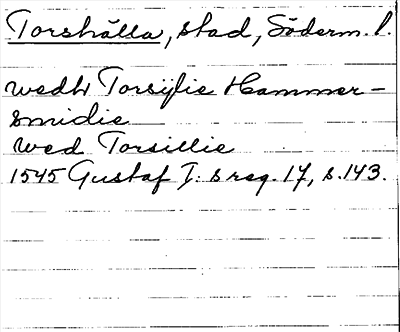 Torshälla, stad, Söderm. l.
wedh Torsijlie Hammer-
smidie
wed Torsillie
1545 Gustaf I:s reg. 17, s. 143.